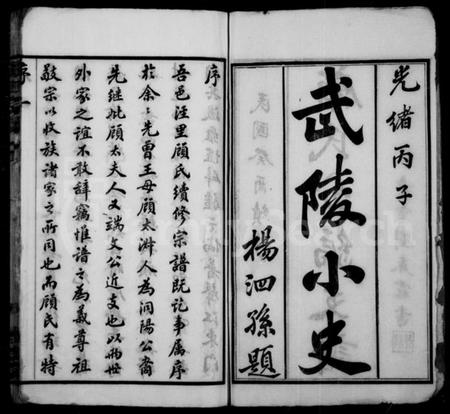 光緒丙子
武陵小史
楊泗孫題
序
吾邑涇里顧氏續修宗譜既訖事屬序
於余〻先曾王母顧太淑人為洞陽公裔
先繼妣顧太夫人又端文公近支也以兩世
外家之誼不敢辭竊惟譜之為義尊祖
敬宗以收族諸家之所同也而顧氏有特
序 一